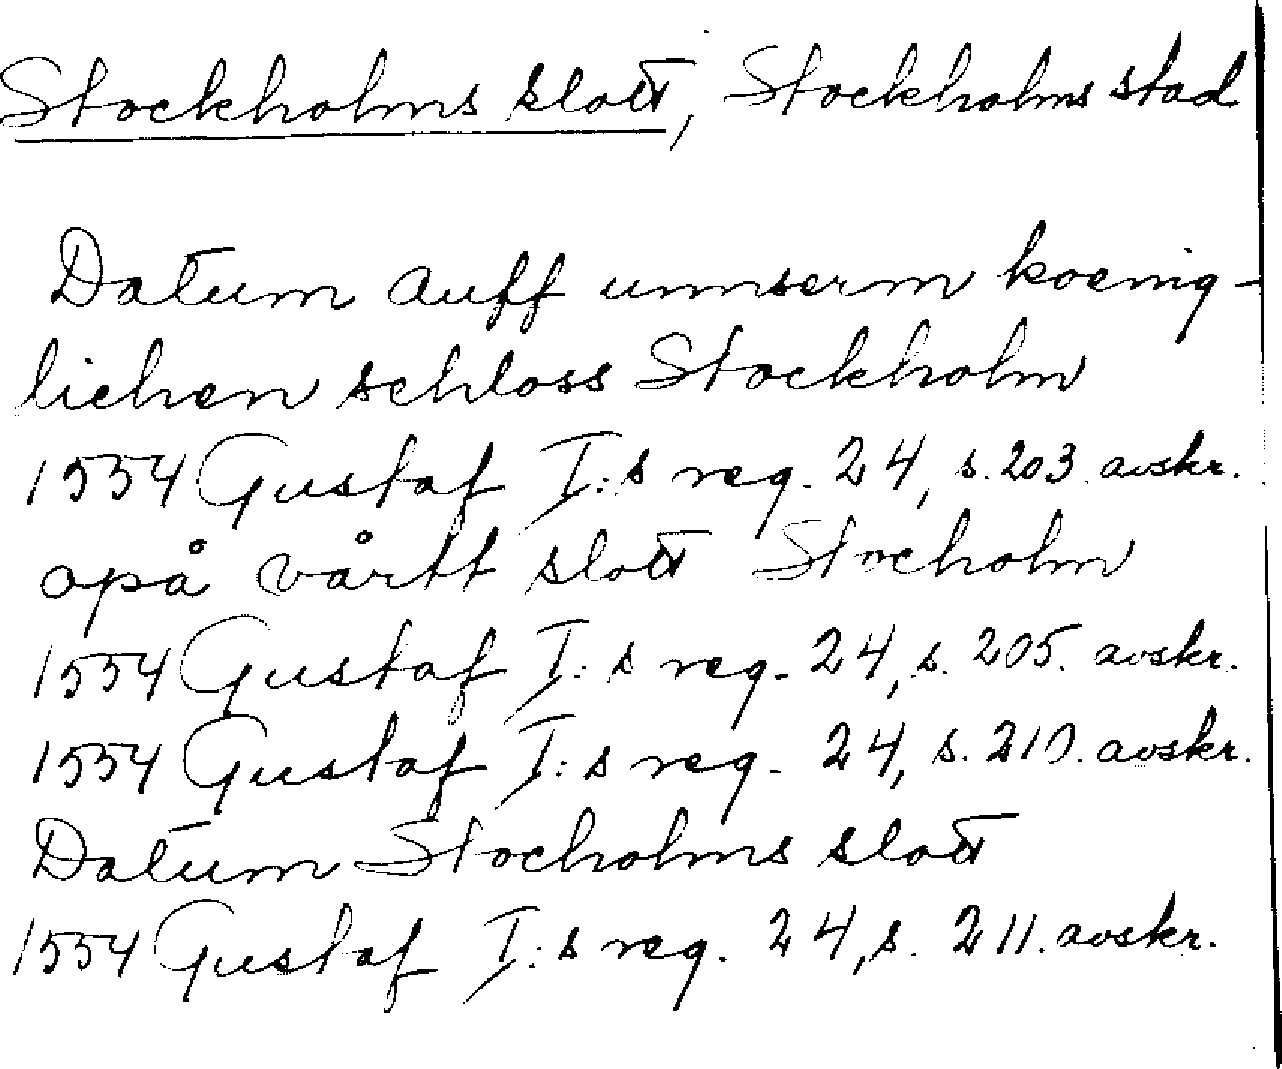 Stockholms slott, Stockholms stad
Datum auff unnserm koenig-
lichen schloss Stockholm
1554 Gustaf I:s reg. 24, s. 203. avskr.
opå vårtt slott Stocholm
1554 Gustaf I:s reg. 24, s. 205. avskr.
1554 Gustaf I:s reg. 24, s. 210. avskr.
Datum Stocholms slott
1554 Gustaf I:s reg. 24, s. 211. avskr.